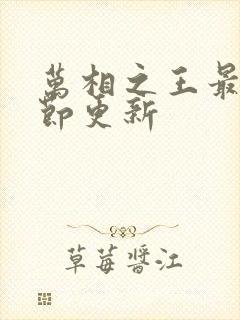 萬相之王最
節更新
草莓醬江